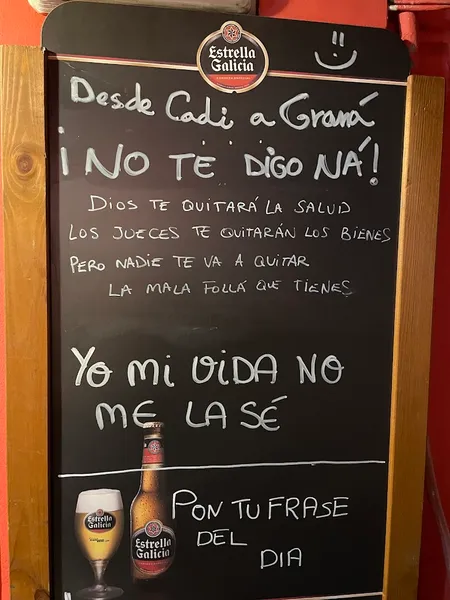 Estrella
Galicia
Desde Cadi a Graná
¡NO TE DIGO NÁ!
DIOS TE QUITARÁ LA SALUD
LOS JUECES TE QUITARÁN LOS BIENES
PERO NADIE TE VA A QUITAR
LA MALA FOLLÁ QUE TIENES
YO MI VIDA NO
ME LA SÉ
PON TU FRASE
DEL
DIA
Estrella
Galicia
Estrella
Galicia